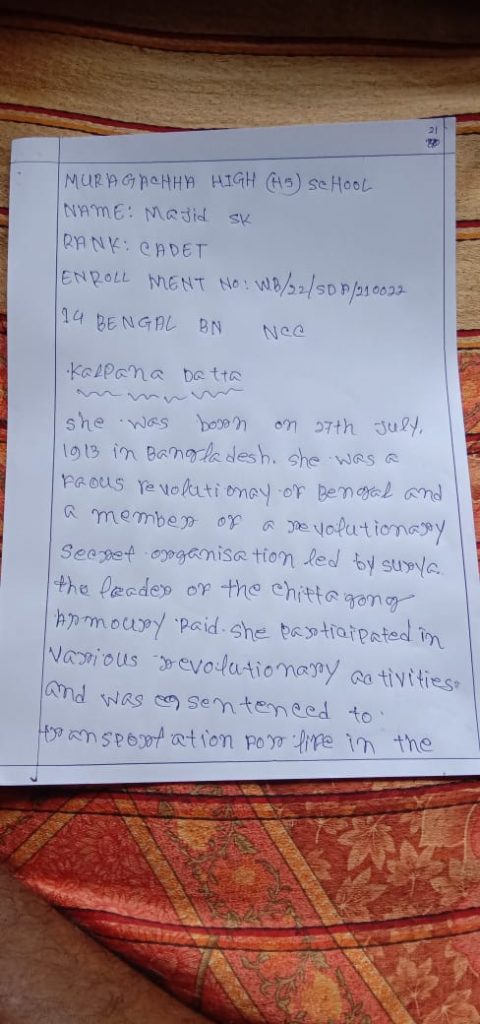 21
MURAGACHHA HIGH (HS) SCHOOL
NAME: Majid SK
RANK: CADET
ENROLL MENT NO: WB/22/SDA/210022
14 BENGAL BN NCC
Kalpana Datta
she was boon on 27th July,
1913 in Bangladesh. she was a
Faous revolutionay of Bengal and
a member of a revolutionary
secret organisation led by surya
the leader of the chittagong
Armoury Raid. she participated in
various revolutionary activities
and was sentenced to
transportation for life in the